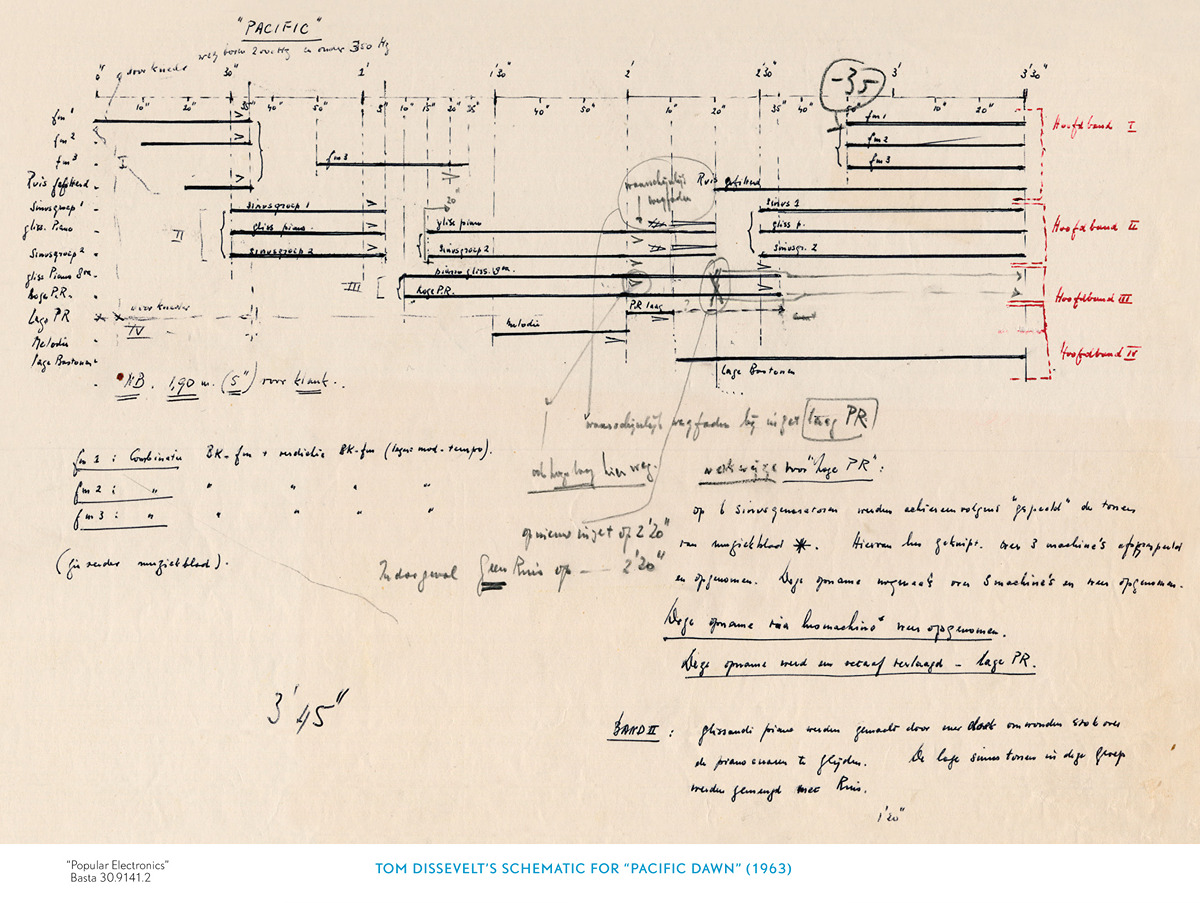 "PACIFIC"
weg boven 2000 Hz en onder 350 Hz
0" 30" 1' 1'30" 2' 2'30" -35 3' 3'30"
10" 20" 35" 40" 50" 5" 10" 15" 20" 25" 40" 50" 10" 20" 35" 40" 50" 10" 20"
fm1
fm2
fm3
Ruis gefilterd
Sinusgroep 1
gliss. Piano
Sinusgroep 2
gliss Piano 8va
hoge P.R.
lage PR
Melodie
lage Bastonen
I
II
III
IV
sinusgroep 1
gliss piano
sinusgroep 2
fm3
gliss piano
sinusgroep 2
piano gliss. 8va
hoge P.R.
PR laag
Melodie
lage Bastonen
waarschijnlijk
wegfaden
?
Ruis gefilterd
fm1
fm2
fm3
sinus 1
gliss p.
sinusgr. 2
Hoofdband I
Hoofdband II
Hoofdband III
Hoofdband IV
NB. 1,90 m. (5") voor klank.
waarschijnlijk wegfaden bij inzet laag PR
hier weg.
opnieuw inzet op 2'20"
In dat geval Geen Ruis op — 2'20"
fm 1 : Combinatie BK-fm + BK-fm (lager mod-tempo).
fm 2 : " " " " "
fm 3 : " " " " "
(zie verder muziekblad).
werkwijze voor "lage PR" :
op 6 sinusgeneratoren werden achtereenvolgens "gespeeld" de tonen
van muziekblad *. Hiervan lus geknipt. over 3 machine's afgespeeld
en opgenomen. Deze opname nogmaals over 3 machine's en weer opgenomen.
Deze opname via lusmachine weer opgenomen.
Deze opname werd een octaaf verlaagd – lage PR.
3'45"
BAND II : glissandi piano werden gemaakt door met doek omwonden stok over
de pianosnaren te glijden. De lage sinustonen in deze groep
werden gemengd met Ruis.
1'20"
"Popular Electronics"
Basta 30.9141.2
TOM DISSEVELT'S SCHEMATIC FOR "PACIFIC DAWN" (1963)